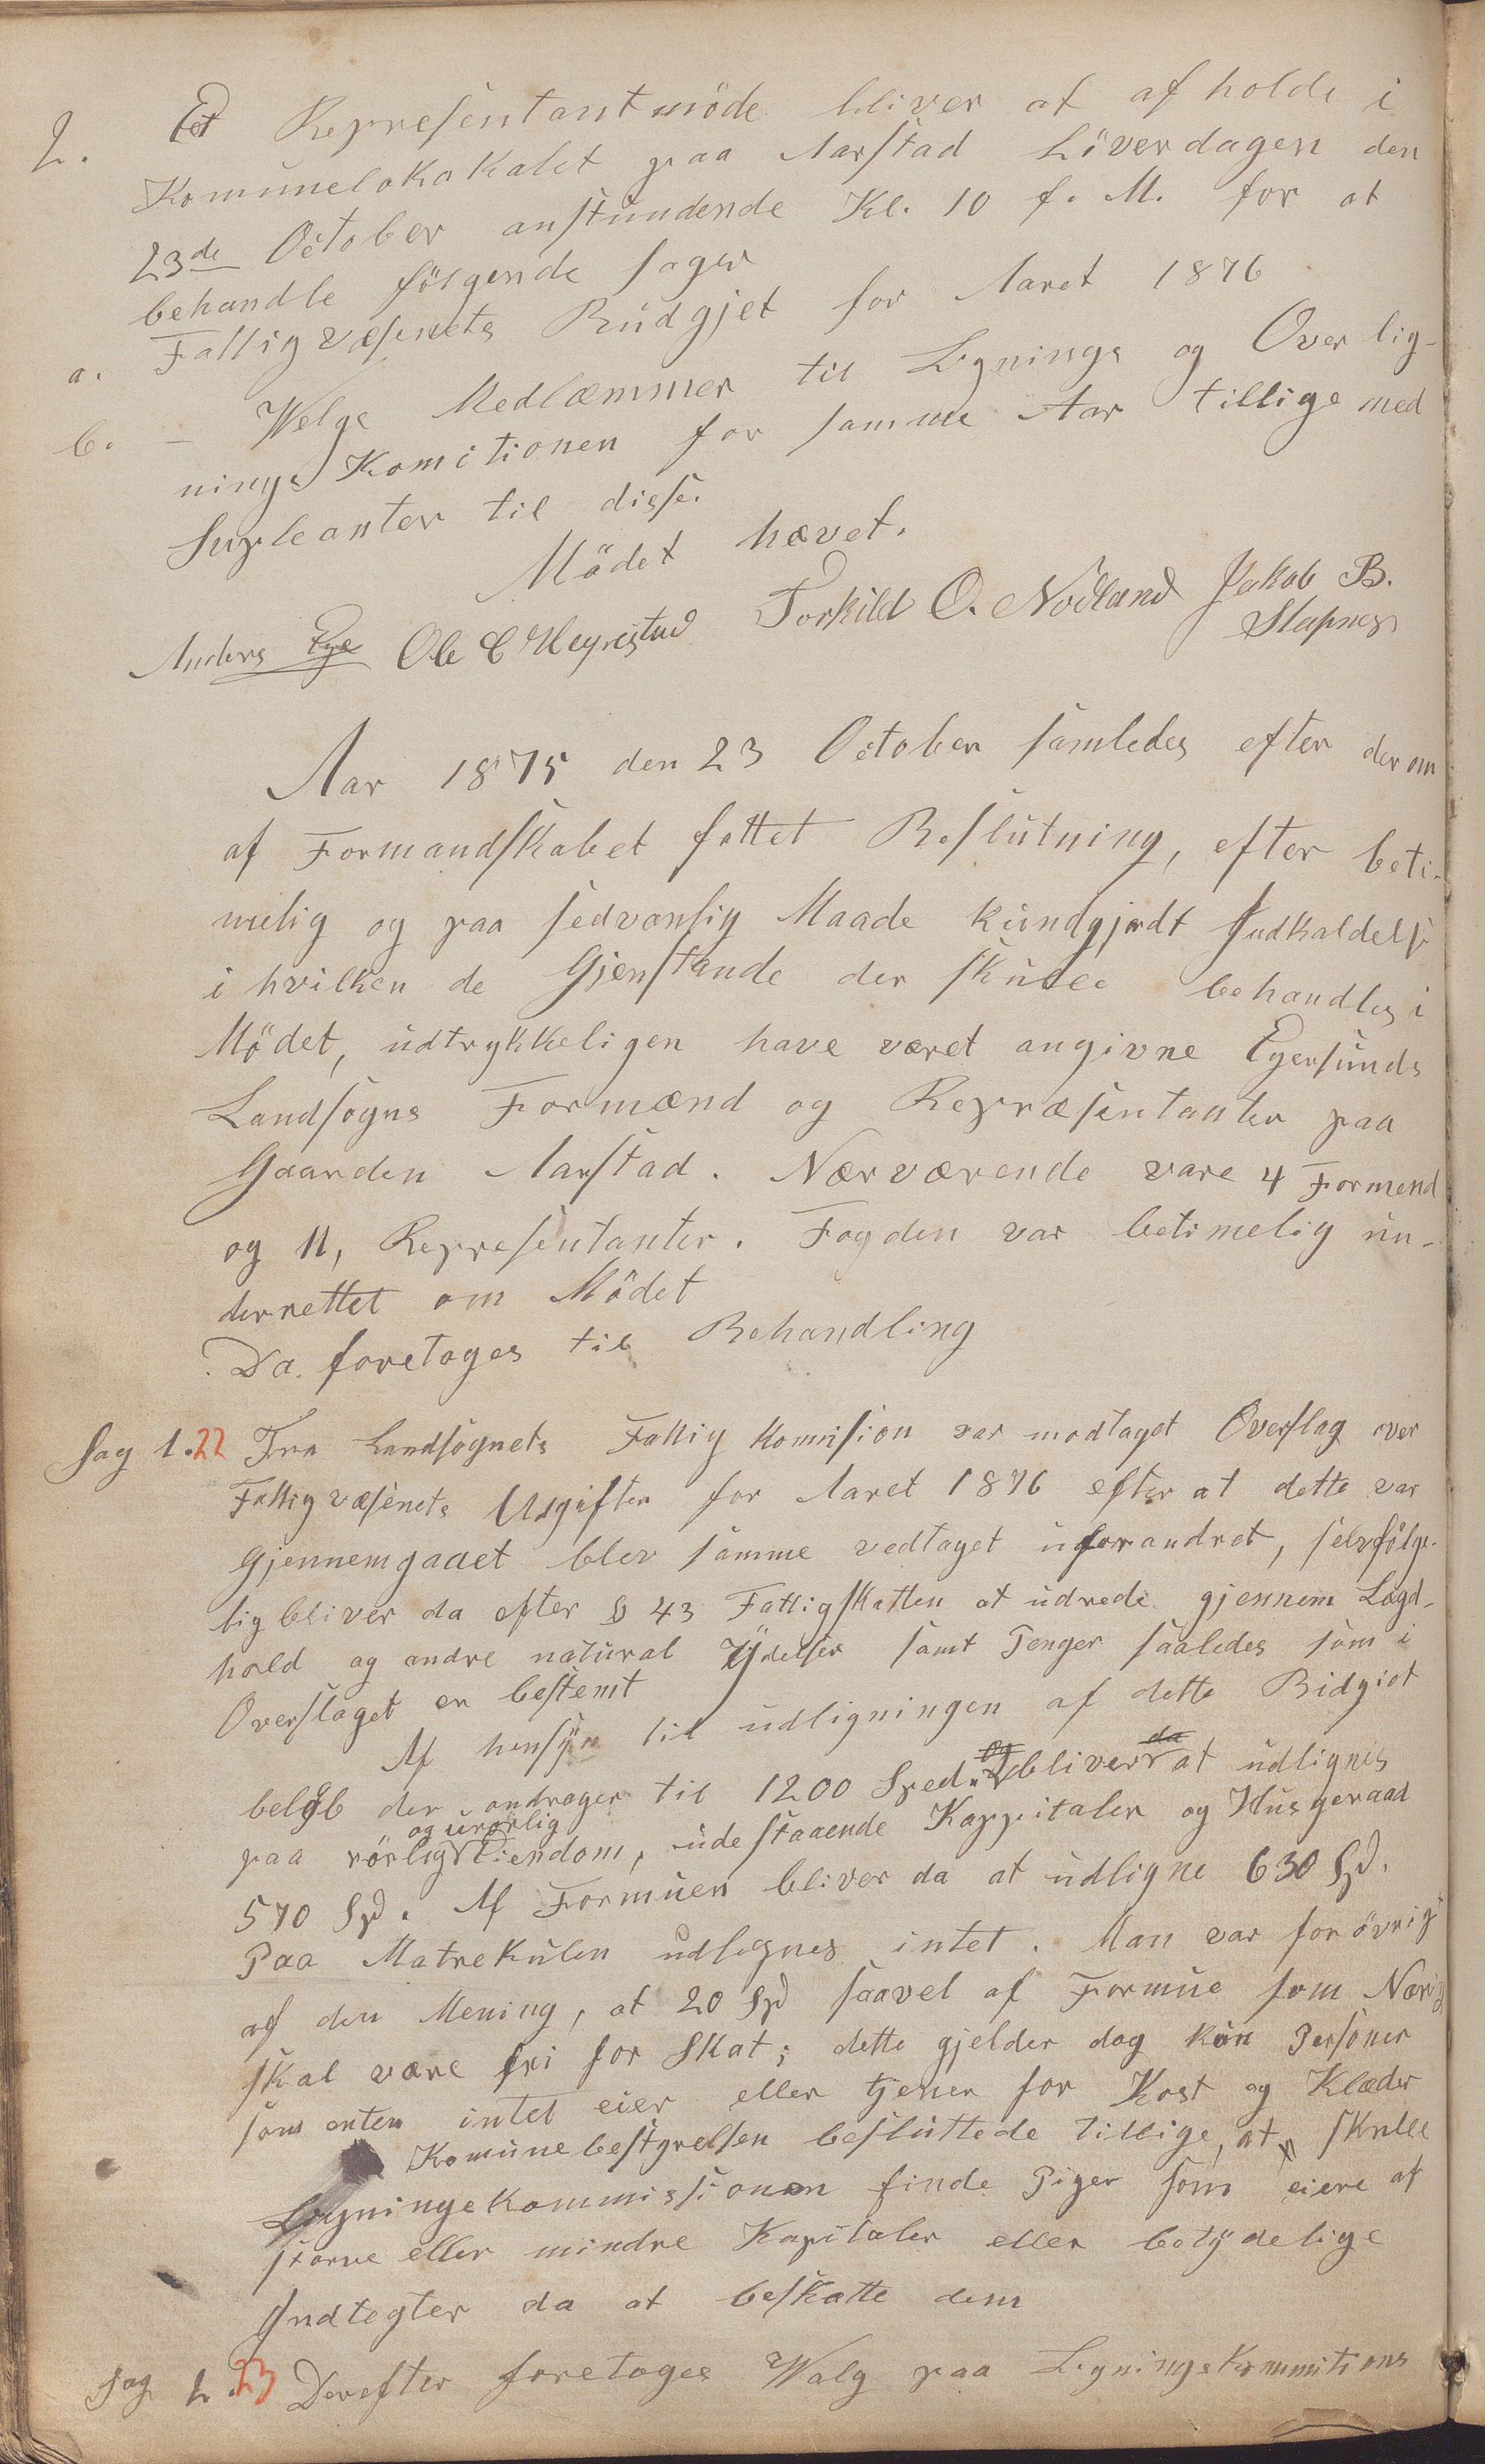 2. Et Repræsentantmöde bliver at afholde i
Komunelokakalet paa Aarstad Löverdagen den
23de October anstundende Kl. 10 f. M. for at
behandle fölgende sager
a. Fattigvæsenets Büdgjet for Aaret 1876
b. - Velge Medlæmmer til Lignings og Overlig-
nings Komitionen for samme Aar tillige med
Supleanter til disse.
Mödet hævet.
Anders Eye Ole C Hegrestad Torkild O. Nodland Jakob B.
Slapnes
Aar 1875 den 23 October samledes efter derom
af Formandskabet fattet Beslütning, efter beti-
melig og paa sedvanlig Maade kündgjordt Indkaldelse
i hvilken de Gjenstande der skülle behandles i
Mödet, üdtrykkeligen have været angivne Egersünds
Landsogns Formænd og Repræsentanter paa
Gaarden Aarstad. Nærværende vare 4 Formend
og 11, Representanter. Fogden var betimelig ün-
derrettet om Mödet
Da foretoges til Behandling
Sag 1. 22 Fra Landsognets Fattig Komision var modtaget Overslag over
Fattigvæsenets Udgifter for Aaret 1876 efter at dette var
Gjennemgaaet blev samme vedtaget üforandret, selvfölge-
lig bliver da efter § 43 Fattigskatten at üdrede gjennem Lægd-
hold og andre natüral Ydelser samt Penger saaledes som i
Overslaget er bestemt
Af hensyn til üdligningen af dette Bidgiet
belöb der andrager til 1200 Sped. og bliver da at üdlignes
og ürørlig
paa rörlig Eiendom, üdestaaende Kappitaler og Hüsgeraad
570 Spd. Af Formüen bliver da at üdligne 630 Spd.
Paa Matrekülen üdlignes intet. Man var forövrigt
af den Mening, at 20 Spd saavel af Formüe som Næring
skal være fri for Skat; dette gjelder dog kün Personer
som enten intet eier eller tjener for Kost og Klæder
Komünebestyrelsen beslüttede tillige, at skulle
Ligningskommissionen finde Piger som eiere af
större eller mindre Kapitaler eller betydelige
Indtegter da at beskatte dem
Sag 2. 23 Derefter foretoges Valg paa Ligningskommitions